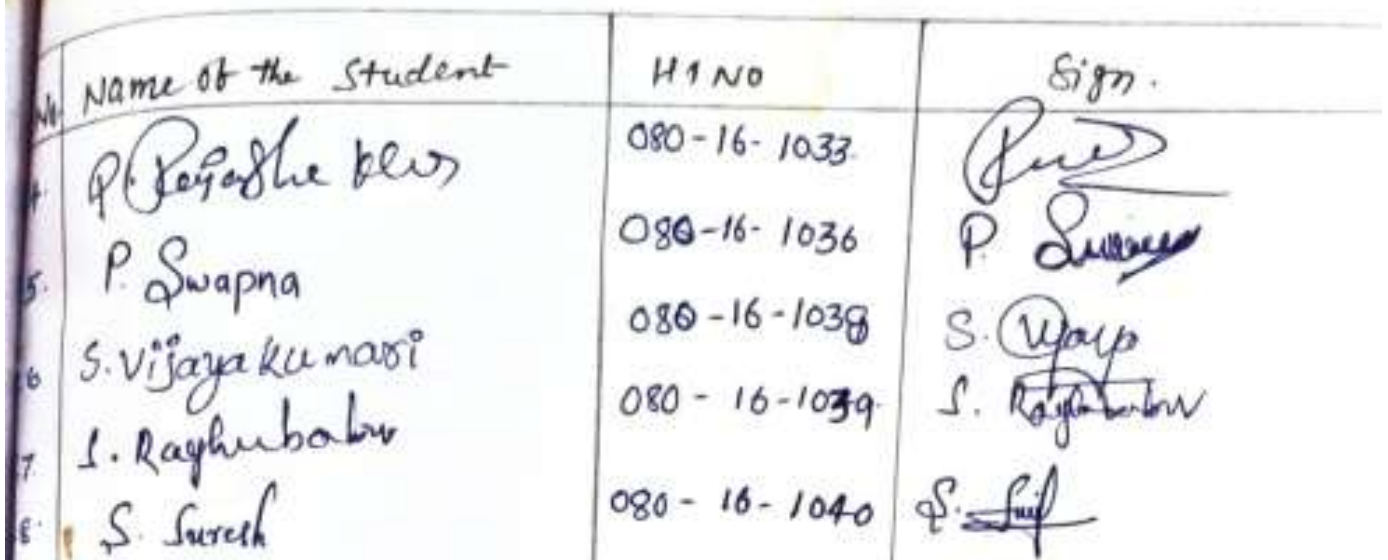 No Name of the Student H1 NO Sign.
P. 080-16-1033
5. P. Swapna 080-16-1036 P.
6 S. Vijaya Kumari 080-16-1038 S.
7. S. Raghubabu 080-16-1039 S. Raghubabu
8. S. Suresh 080-16-1040 S.